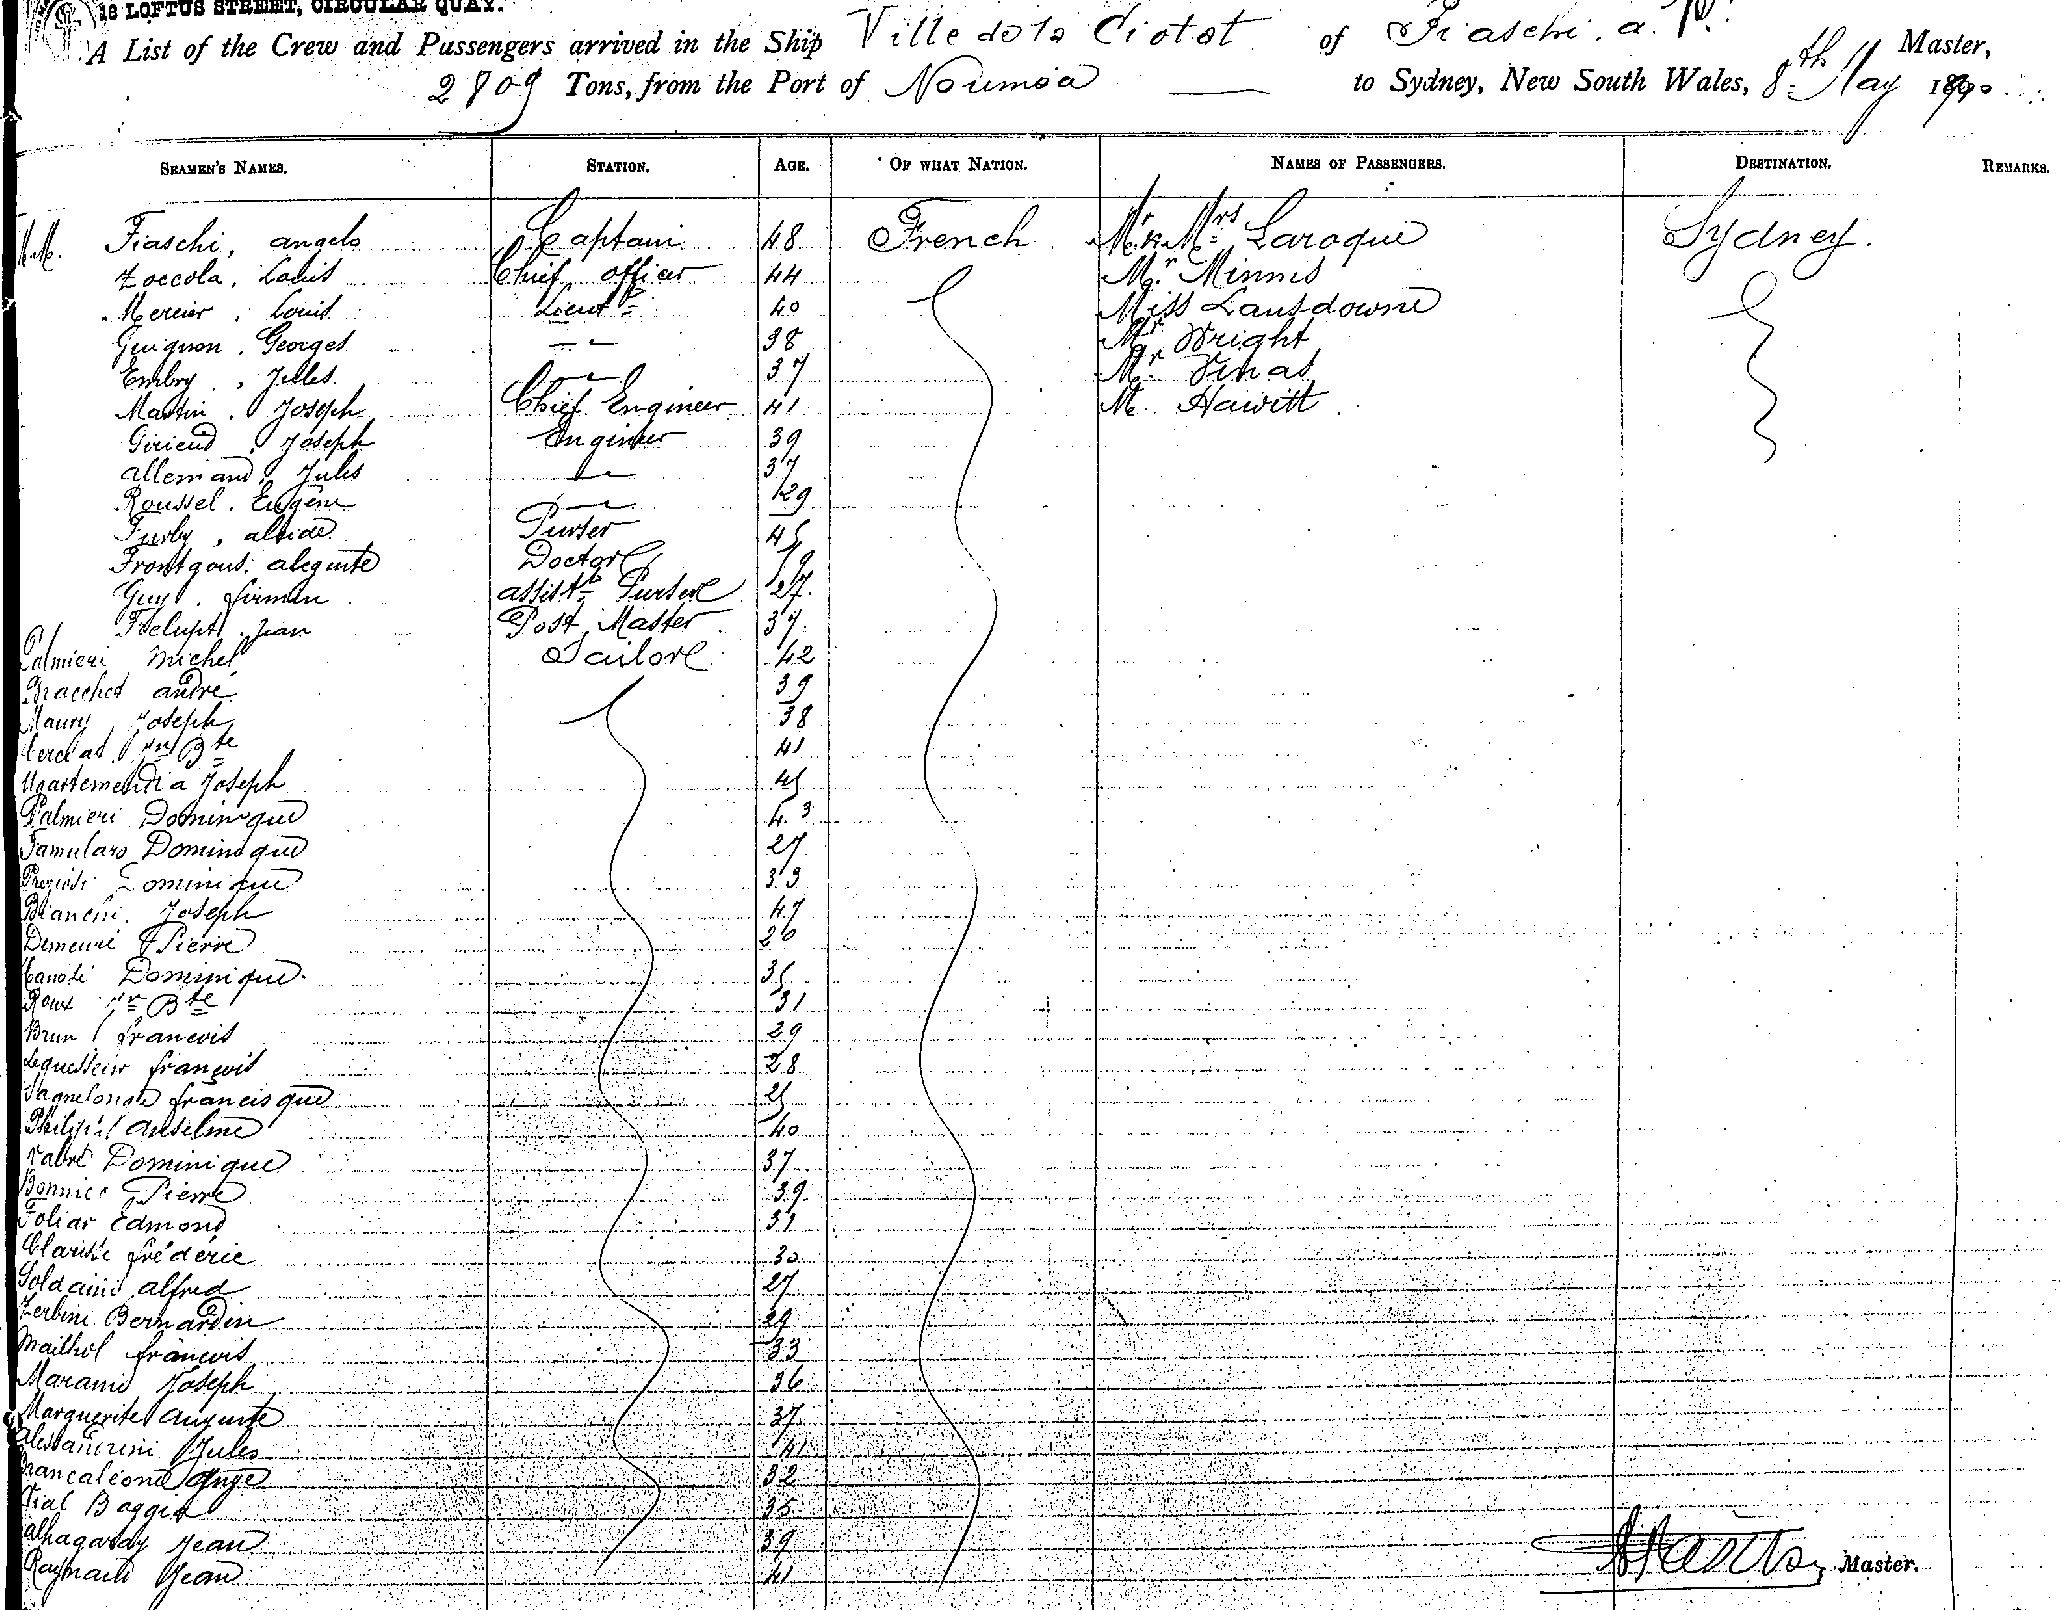 18 LOFTUS STREET, CIRCULAR QUAY.
A List of the Crew and Passengers arrived in the Ship Ville de la Ciotat of Fiaschi. a. P. Master,
2809 Tons, from the Port of Noumea to Sydney, New South Wales, 8th May 1890
SEAMEN'S NAMES. STATION. AGE. OF WHAT NATION. NAMES OF PASSENGERS. DESTINATION. REMARKS.
Fiaschi, angelo Captain 48 French Mr & Mrs Laroque Sydney.
Zoccola, Louis Chief officer 44 Mr Minnis
Mercier, Louis Lieut 40 Miss Lansdowne
Guignon, Georges 38 Mr Wright
Embry, Jules 37 Mr Vinas
Martin, Joseph Chief Engineer 41 M. Hawitt
Giriend, Joseph Engineer 39
allemand, Jules 37
Roussel, Eugène 29
Furby, alcide Purser 45
Doctor
Guy, firmin assist Purser 27
Jean Post Master 37
Palmieri Michel Sailors 42
Bracchet andré 39
Maury Joseph 38
Jn Bte 41
Joseph 45
Palmieri Dominique 43
Famularo Dominique 27
Preziosi Dominique 33
Bianchi Joseph 47
Demeuré Pierre 26
Dominique 35
Roux Jn Bte 31
Brun francois 29
Lequesseur françois 28
francisque 25
Philip anselme 40
Vabre Dominique 37
Bonnici Pierre 39
Foliar Edmond 31
Clarisse frédéric 30
Soldaini alfred 27
Zerbini Bernardin 29
Mailhol francois 33
Marani Joseph 36
Marguerite auguste 37
alessandrini Jules 41
Francaleoni Ange 32
Vial Baggio 35
alhagaray Jean 39
Raynaud Jean 41
Master.